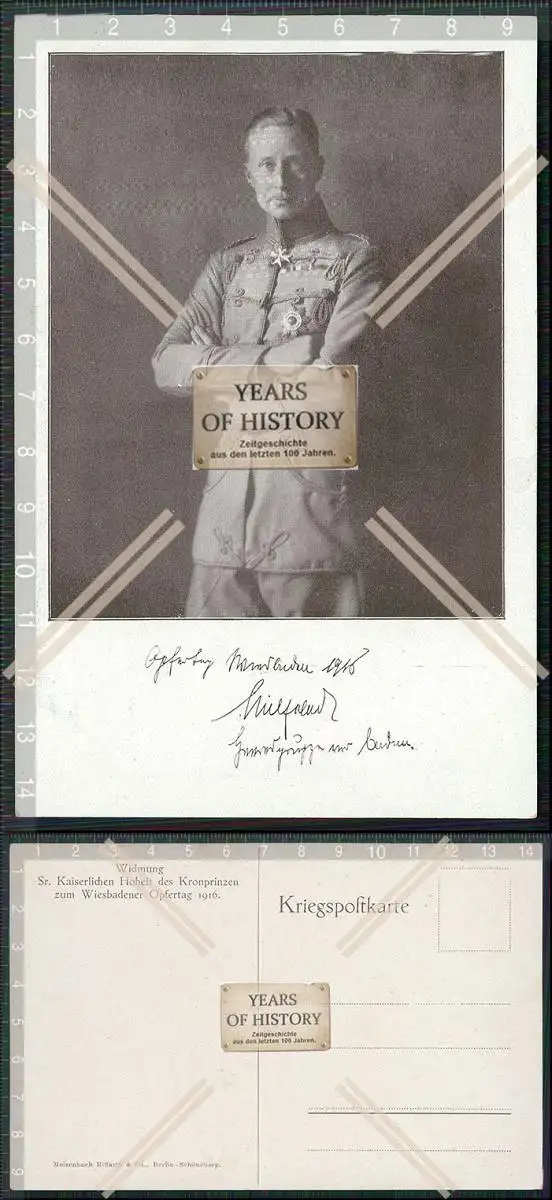 1 2 3 4 5 6 7 8 9
1
2
3
4
5
6
7
8
9
10
11
12
13
14
YEARS
OF HISTORY
Zeitgeschichte
aus den letzten 100 Jahren.
Opfertag Wiesbaden 1916
Wilhelm
1 2 3 4 5 6 7 8 9 10 11 12 13 14
1
2
3
4
5
6
7
8
9
Widmung
Sr. Kaiserlichen Hoheit des Kronprinzen
zum Wiesbadener Opfertag 1916.
Kriegspostkarte
YEARS
OF HISTORY
Zeitgeschichte
aus den letzten 100 Jahren.
Meisenbach Riffarth & Co., Berlin-Schöneberg.